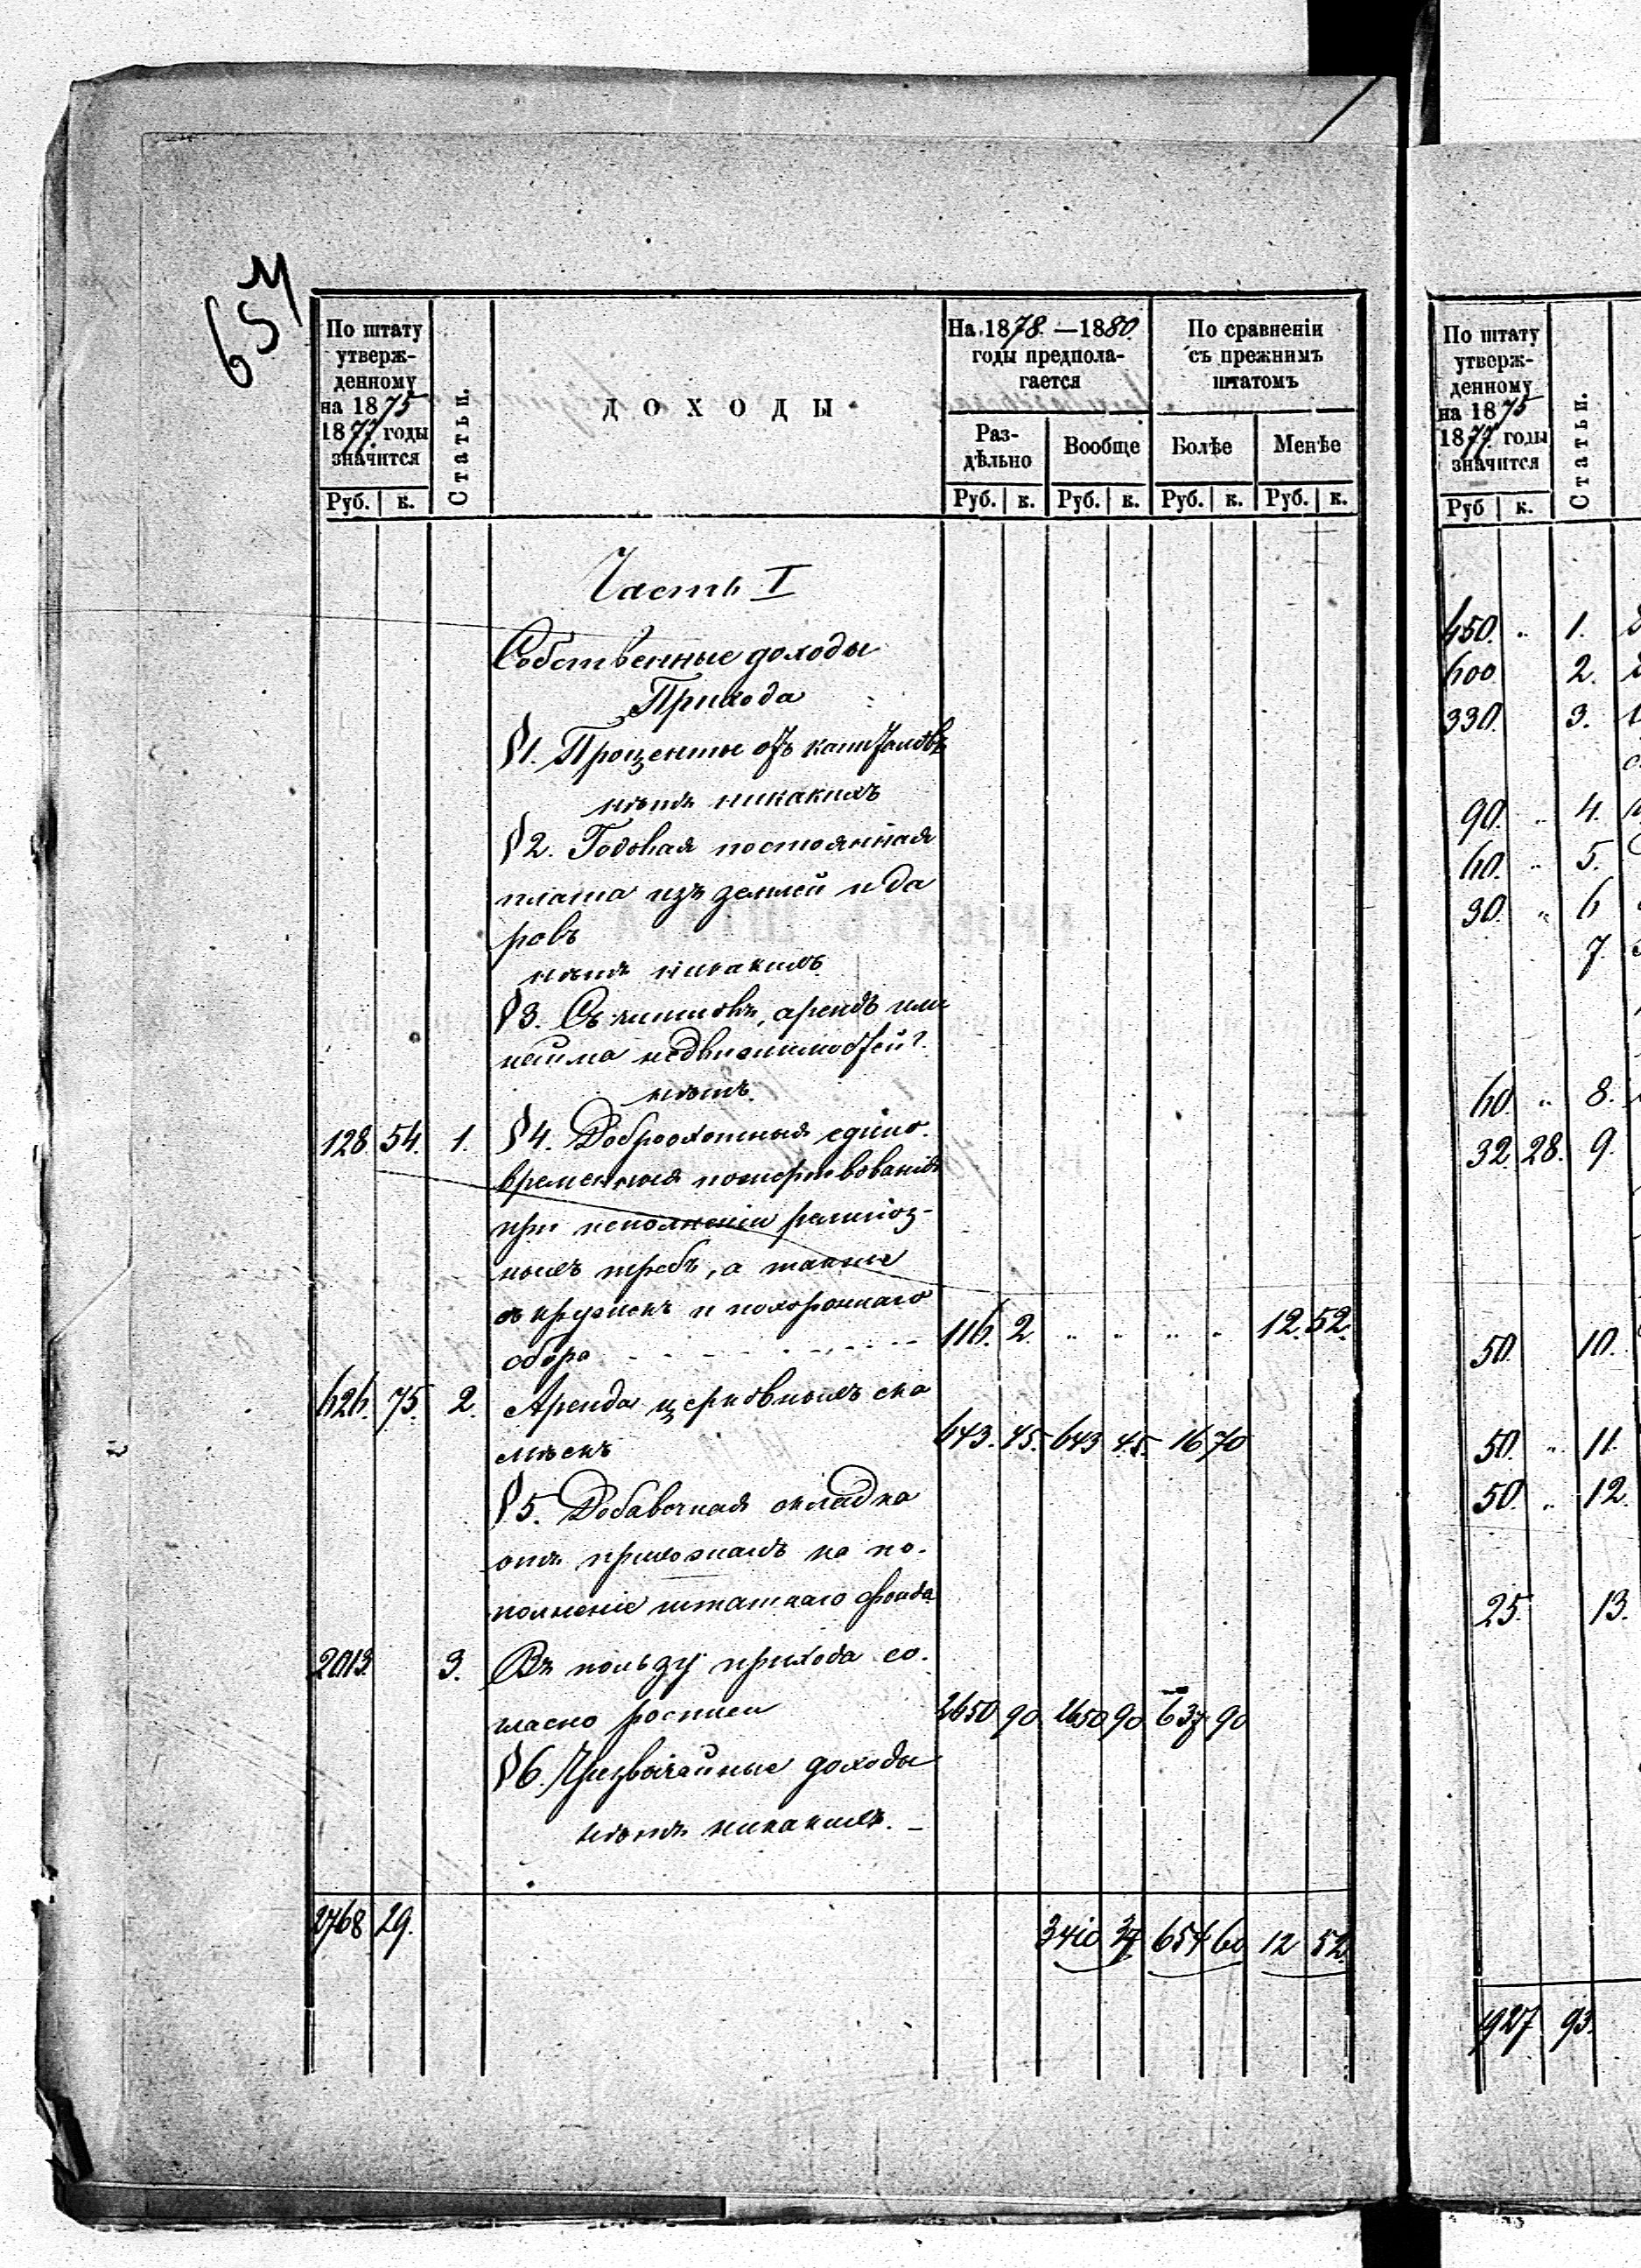 65
По штату
утверж-
денному
на 1875
1877 годы
значится
Руб. к.
Статьи.
ДОХОДЫ
На 1878 — 1880.
годы предпола-
гается
Раз-
дѣльно
Вообще
Руб. к. Руб. к.
По сравненіи
съ прежнимъ
штатомъ
Болѣе
Менѣе
Руб. к. Руб. к.
Часть I
Собственные доходы
Прихода
§1. Проценты отъ капиталовъ
нѣтъ никакихъ
§2. Годовая постоянная
плата изъ земель и да
ровъ
нѣтъ никакихъ
§3. Съ чиншовъ, арендъ или
найма недвижимостей?
нѣтъ.
128. 54. 1. §4. Доброохотныя едино-
временныя пожертвованія
при исполненіи религіоз-
ныхъ требъ, а также
съ кружекъ и похороннаго
сбора - - - - - - 116. 2 " " " " 12. 52.
626. 75. 2. Аренда церковныхъ ска
мѣекъ 643. 45. 643 45. 16 70
§5. Добавочная складка
отъ прихожанъ на по-
полненіе штатнаго фонда
2013. 3. Въ пользу прихода со-
гласно росписи 2650 90 2650 90 637 90
§6. Чрезвычайные доходы
нѣтъ никакихъ. -
2768 29. 3410 37 654 60 12 52
По штату
утверж-
денному
на 1875
1877 годы
значится
Руб к.
Статьи.
450. " 1.
600 2.
330. 3.
90. " 4.
60. " 5.
30. " 6
7.
60. " 8.
32. 28. 9.
50. 10.
50. " 11.
50. " 12.
25. 13.
1927 93.